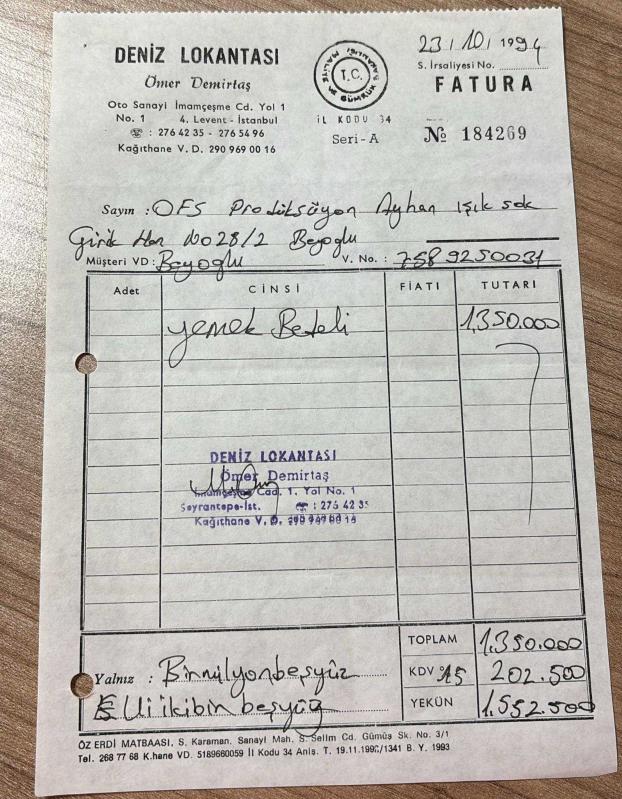 DENİZ LOKANTASI
Ömer Demirtaş
Oto Sanayi İmamçeşme Cd. Yol 1
No. 1 4. Levent - İstanbul
☎ : 276 42 35 - 276 54 96
Kağıthane V. D. 290 969 00 16
T.C.
MALİYE VE GÜMRÜK BAKANLIĞI
İL KODU 34
Seri - A
23/10/1994
S. İrsaliyesi No.
FATURA
№ 184269
Sayın : OFS Prodüksüyon Ayhan ışık sok
Girik Han No 28/2 Beyoglu
Müşteri VD : Beyoglu V. No. : 758 925 0031
Adet CİNSİ FİATI TUTARI
yemek Bedeli 1.350.000
DENİZ LOKANTASI
Ömer Demirtaş
İmamçeşme Cad. 1. Yol No. 1
Seyrantepe-İst. ☎ : 276 42 35
Kağıthane V. D. 290 969 00 16
TOPLAM 1.350.000
Yalnız : Birmilyonbeşyüz KDV % 15 202.500
Elliikibin beşyüz YEKÜN 1.552.500
ÖZ ERDİ MATBAASI, S. Karaman. Sanayi Mah. S. Selim Cd. Gümüş Sk. No. 3/1
Tel. 268 77 68 K.hane VD. 5189660059 İl Kodu 34 Anlş. T. 19.11.1990/1341 B. Y. 1993